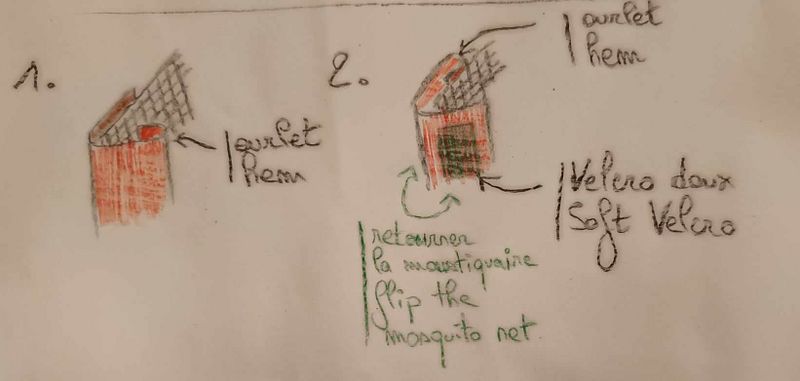 1.
ourlet
hem
2.
ourlet
hem
Velcro doux
Soft Velcro
retourner
la moustiquaire
flip the
mosquito net.